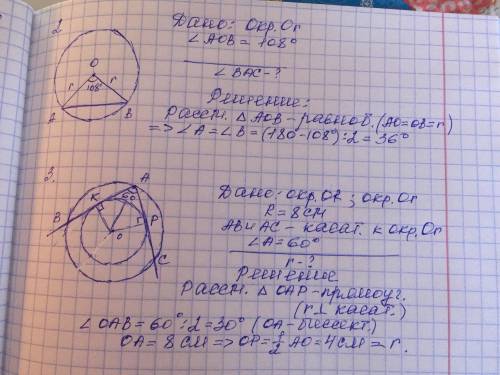 2.
Дано: Окр.Or
∠AOB = 108°
∠BAC-?
Решение:
Рассм. △AOB-равноб.(AO=OB=r)
=> ∠A=∠B=(180-108°):2=36°
O
r
r
108°
A
B
3.
Дано: окр.OR; окр.Or
R=8см
AB и AC - касат. к окр.Or
∠A=60°
r-?
Решение
Рассм. △OAP-прямоуг.
(r⊥касат.)
∠OAB=60°:2=30° (OA-биссект.)
OA=8см=>OP=½AO=4см=r.
A
60°
K
B
r
P
O
C